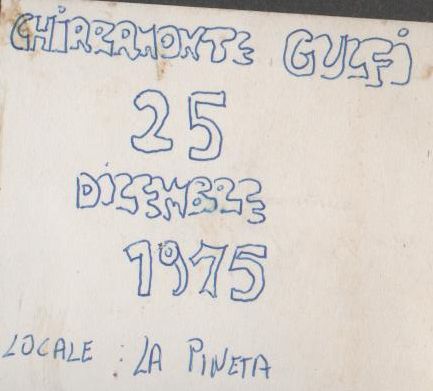 CHIARAMONTE GULFi
25
DiCEMBRE
1975
LOCALE : LA PINETA